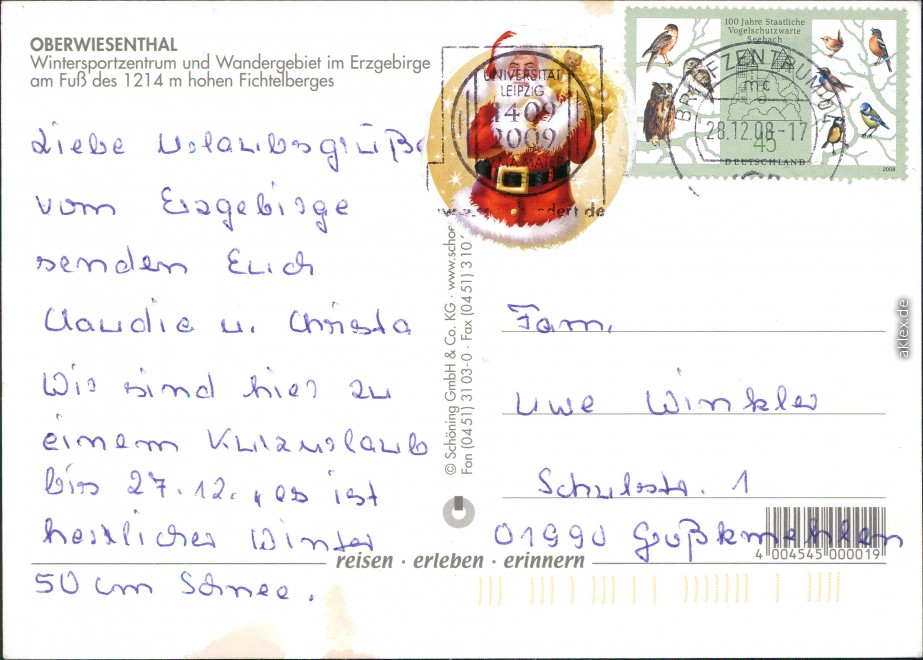 OBERWIESENTHAL
Wintersportzentrum und Wandergebiet im Erzgebirge
am Fuß des 1214 m hohen Fichtelberges
Liebe Urlaubsgrüße
vom Erzgebirge
senden Euch
Claudia u. Christa
Wir sind hier zu
einem Kurzurlaub
bis 27.12., es ist
herrlicher Winter
50 cm Schnee.
UNIVERSITÄT
LEIPZIG
1409
2009
ALMA MATER
100 Jahre Staatliche
Vogelschutzwarte
Seebach
45
DEUTSCHLAND
2008
BRIEFZENTRUM 04
mc
28.12.08-17
© Schöning GmbH & Co. KG · www.schoe
Fon (04 51) 31 03-0 · Fax (04 51) 3 10
Fam.
Uwe Winkler
Schulstr. 1
01990 Großkmehlen
4 004545 000019
reisen · erleben · erinnern
aklex.de